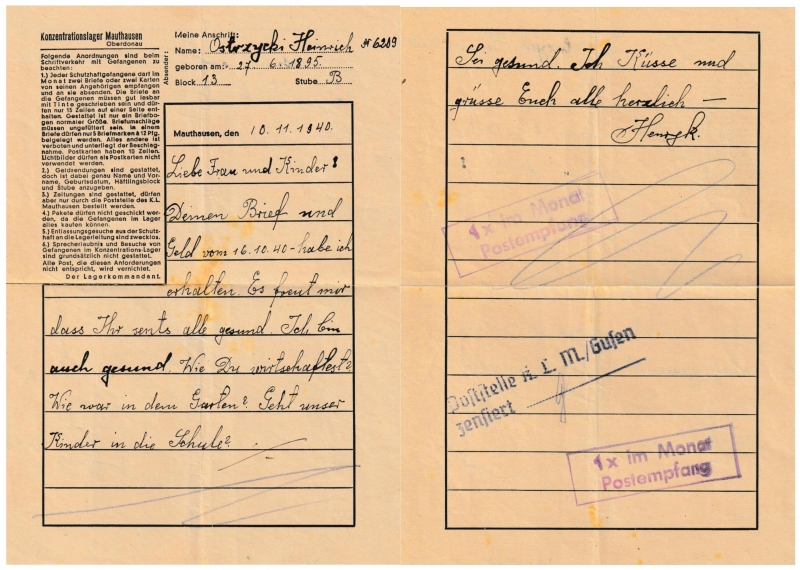 Konzentrationslager Mauthausen
Oberdonau
Folgende Anordnungen sind beim
Schriftverkehr mit Gefangenen zu
beachten:
1.) Jeder Schutzhaftgefangene darf im
Monat zwei Briefe oder zwei Karten
von seinen Angehörigen empfangen
und an sie absenden. Die Briefe an
die Gefangenen müssen gut lesbar
mit Tinte geschrieben sein und dür-
fen nur 15 Zeilen auf einer Seite ent-
halten. Gestattet ist nur ein Briefbo-
gen normaler Größe. Briefumschläge
müssen ungefüttert sein. In einem
Briefe dürfen nur 5 Briefmarken à 12 Pfg.
beigelegt werden. Alles andere ist
verboten und unterliegt der Beschlag-
nahme. Postkarten haben 10 Zeilen.
Lichtbilder dürfen als Postkarten nicht
verwendet werden.
2.) Geldsendungen sind gestattet,
doch ist dabei genau Name und Vor-
name, Geburtsdatum, Häftlingsblock
und Stube anzugeben.
3.) Zeitungen sind gestattet, dürfen
aber nur durch die Poststelle des K.L.
Mauthausen bestellt werden.
4.) Pakete dürfen nicht geschickt wer-
den, da die Gefangenen im Lager
alles kaufen können.
5.) Entlassungsgesuche aus der Schutz-
haft an die Lagerleitung sind zwecklos.
6.) Sprecherlaubnis und Besuche von
Gefangenen im Konzentrations-Lager
sind grundsätzlich nicht gestattet.
Alle Post, die diesen Anforderungen
nicht entspricht, wird vernichtet.
Der Lagerkommandant.
Absender:
Meine Anschrift:
Name: Ostrzycki Heinrich № 6289
geboren am: 27 6. 1895.
Block 13 Stube B
Mauthausen, den 10.11.1940.
Liebe Frau und Kinder!
Deinen Brief und
Geld vom 16.10.40 - habe ich
erhalten. Es freut mir
dass Ihr sents alle gesund. Ich bin
auch gesund. Wie Du wirtschaftest?
Wie war in dem Garten? Geht unser
Kinder in die Schule?
Sei gesund. Ich Küsse und
grüsse Euch alle herzlich —
Henryk.
1 x im Monat
Postempfang
Poststelle K. L. M./Gusen
zensiert
1 x im Monat
Postempfang